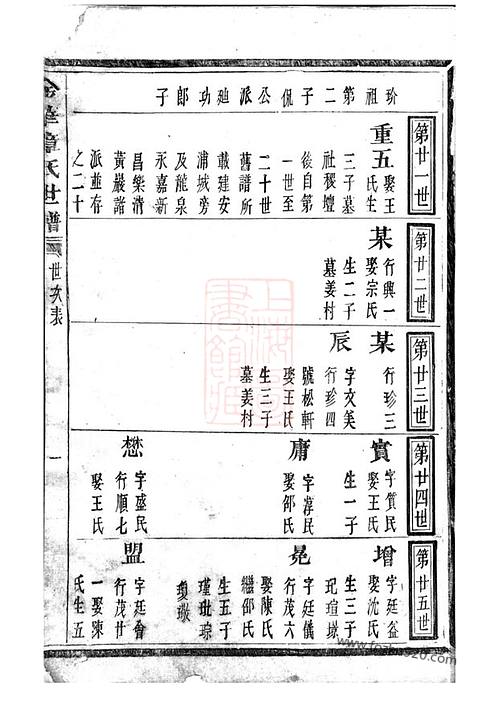 玠祖第二子侃公派迪功郎子
第廿一世
重五
娶王氏生
三子墓
社稷壇
後自第
一世至
二十世
舊譜所
載建安
浦城旁
及龍泉
永嘉新
昌樂清
黃巖諸
派並存
之二十
第廿二世
某
行興一
娶宗氏
生二子
墓姜村
第廿三世
某
行珍三
辰
字文美
行珍四
號松軒
娶王氏
生三子
墓姜村
第廿四世
實
字質民
娶王氏
生一子
庸
字淳民
娶邵氏
懋
字盛民
行順七
娶王氏
第廿五世
增
字廷益
娶沈氏
生三子
玘瑄
晃
字廷儀
行茂六
娶陳氏
繼邵氏
生五子
瑾玭琮
盟
字廷會
行茂廿
一娶陳
氏生五
章氏世譜
世次表
一
上海圖書館藏